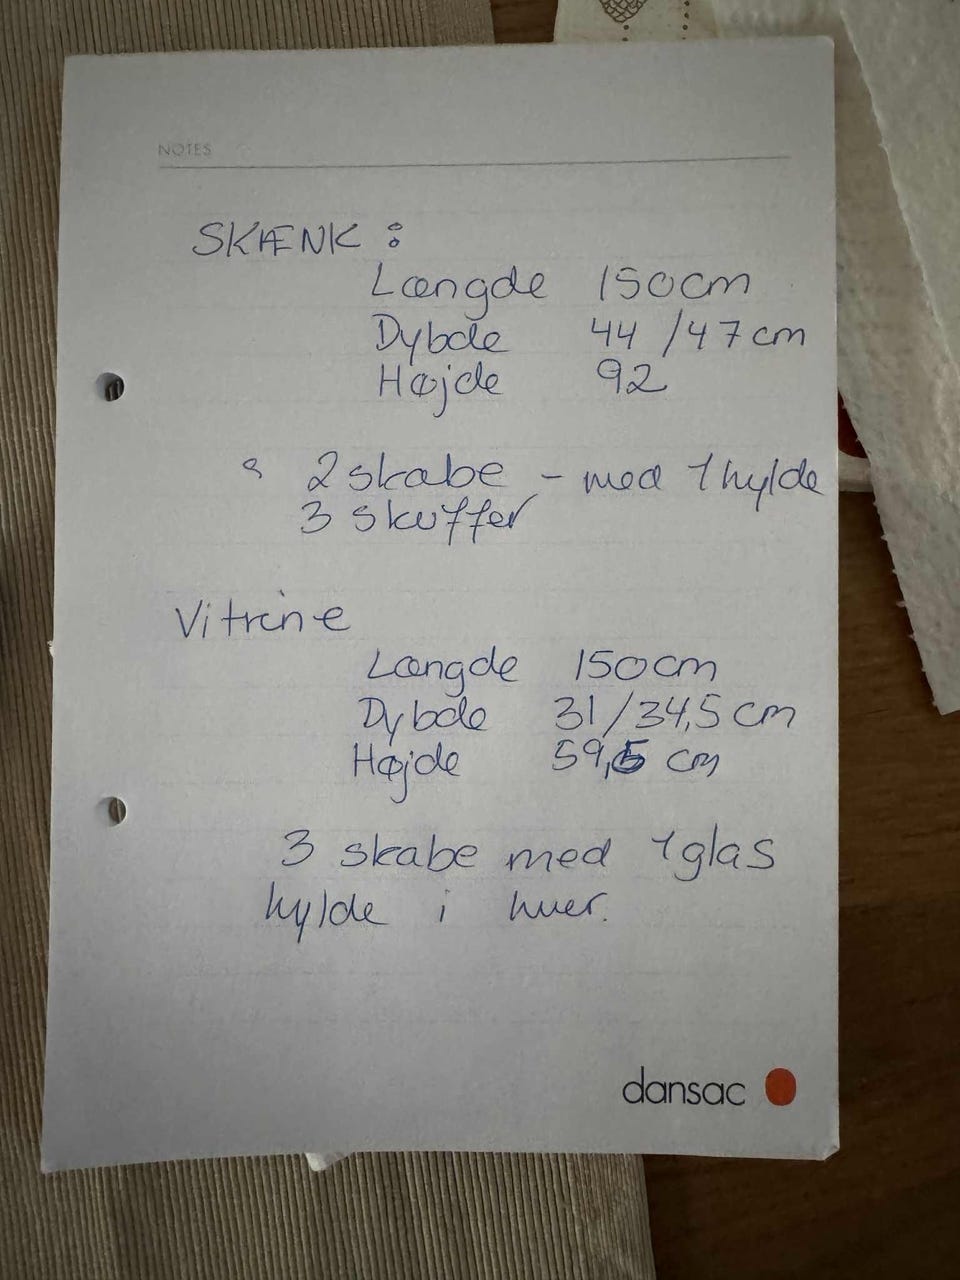 NOTES
SKÆNK :
Længde 150cm
Dybde 44/47cm
Højde 92
2 skabe - med 1 hylde
3 skuffer
Vitrine
Længde 150cm
Dybde 31/34,5 cm
Højde 59,5 cm
3 skabe med 1 glas
hylde i hver.
dansac